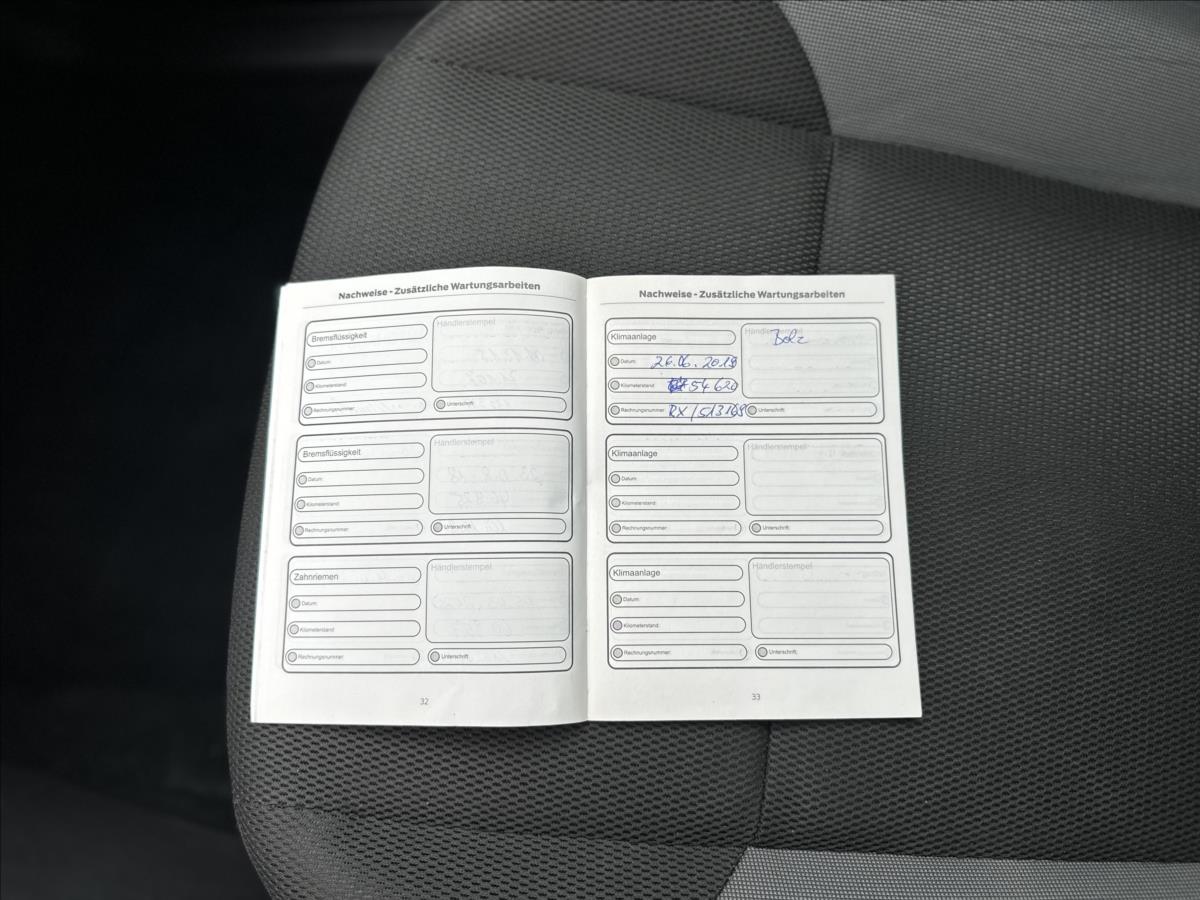 Nachweise - Zusätzliche Wartungsarbeiten
Bremsflüssigkeit
Händlerstempel
Datum:
Kilometerstand:
Rechnungsnummer:
Unterschrift:
Bremsflüssigkeit
Händlerstempel
Datum:
Kilometerstand:
Rechnungsnummer:
Unterschrift:
Zahnriemen
Händlerstempel
Datum:
Kilometerstand:
Rechnungsnummer:
Unterschrift:
32
Nachweise - Zusätzliche Wartungsarbeiten
Klimaanlage
Händlerstempel
Bolz
Datum: 26.06.2019
Kilometerstand: 54620
Rechnungsnummer: RX/513169
Unterschrift:
Klimaanlage
Händlerstempel
Datum:
Kilometerstand:
Rechnungsnummer:
Unterschrift:
Klimaanlage
Händlerstempel
Datum:
Kilometerstand:
Rechnungsnummer:
Unterschrift:
33